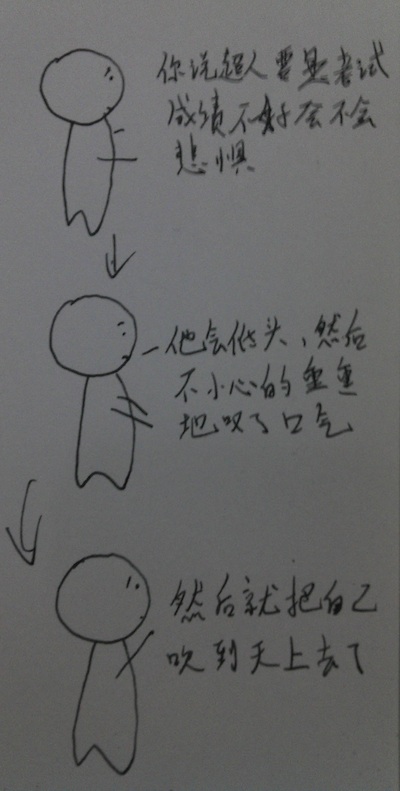 你说超人要是考试
成绩不好会不会
悲惧
他会低头，然后
不小心的重重
地叹了口气
然后就把自己
吹到天上去了